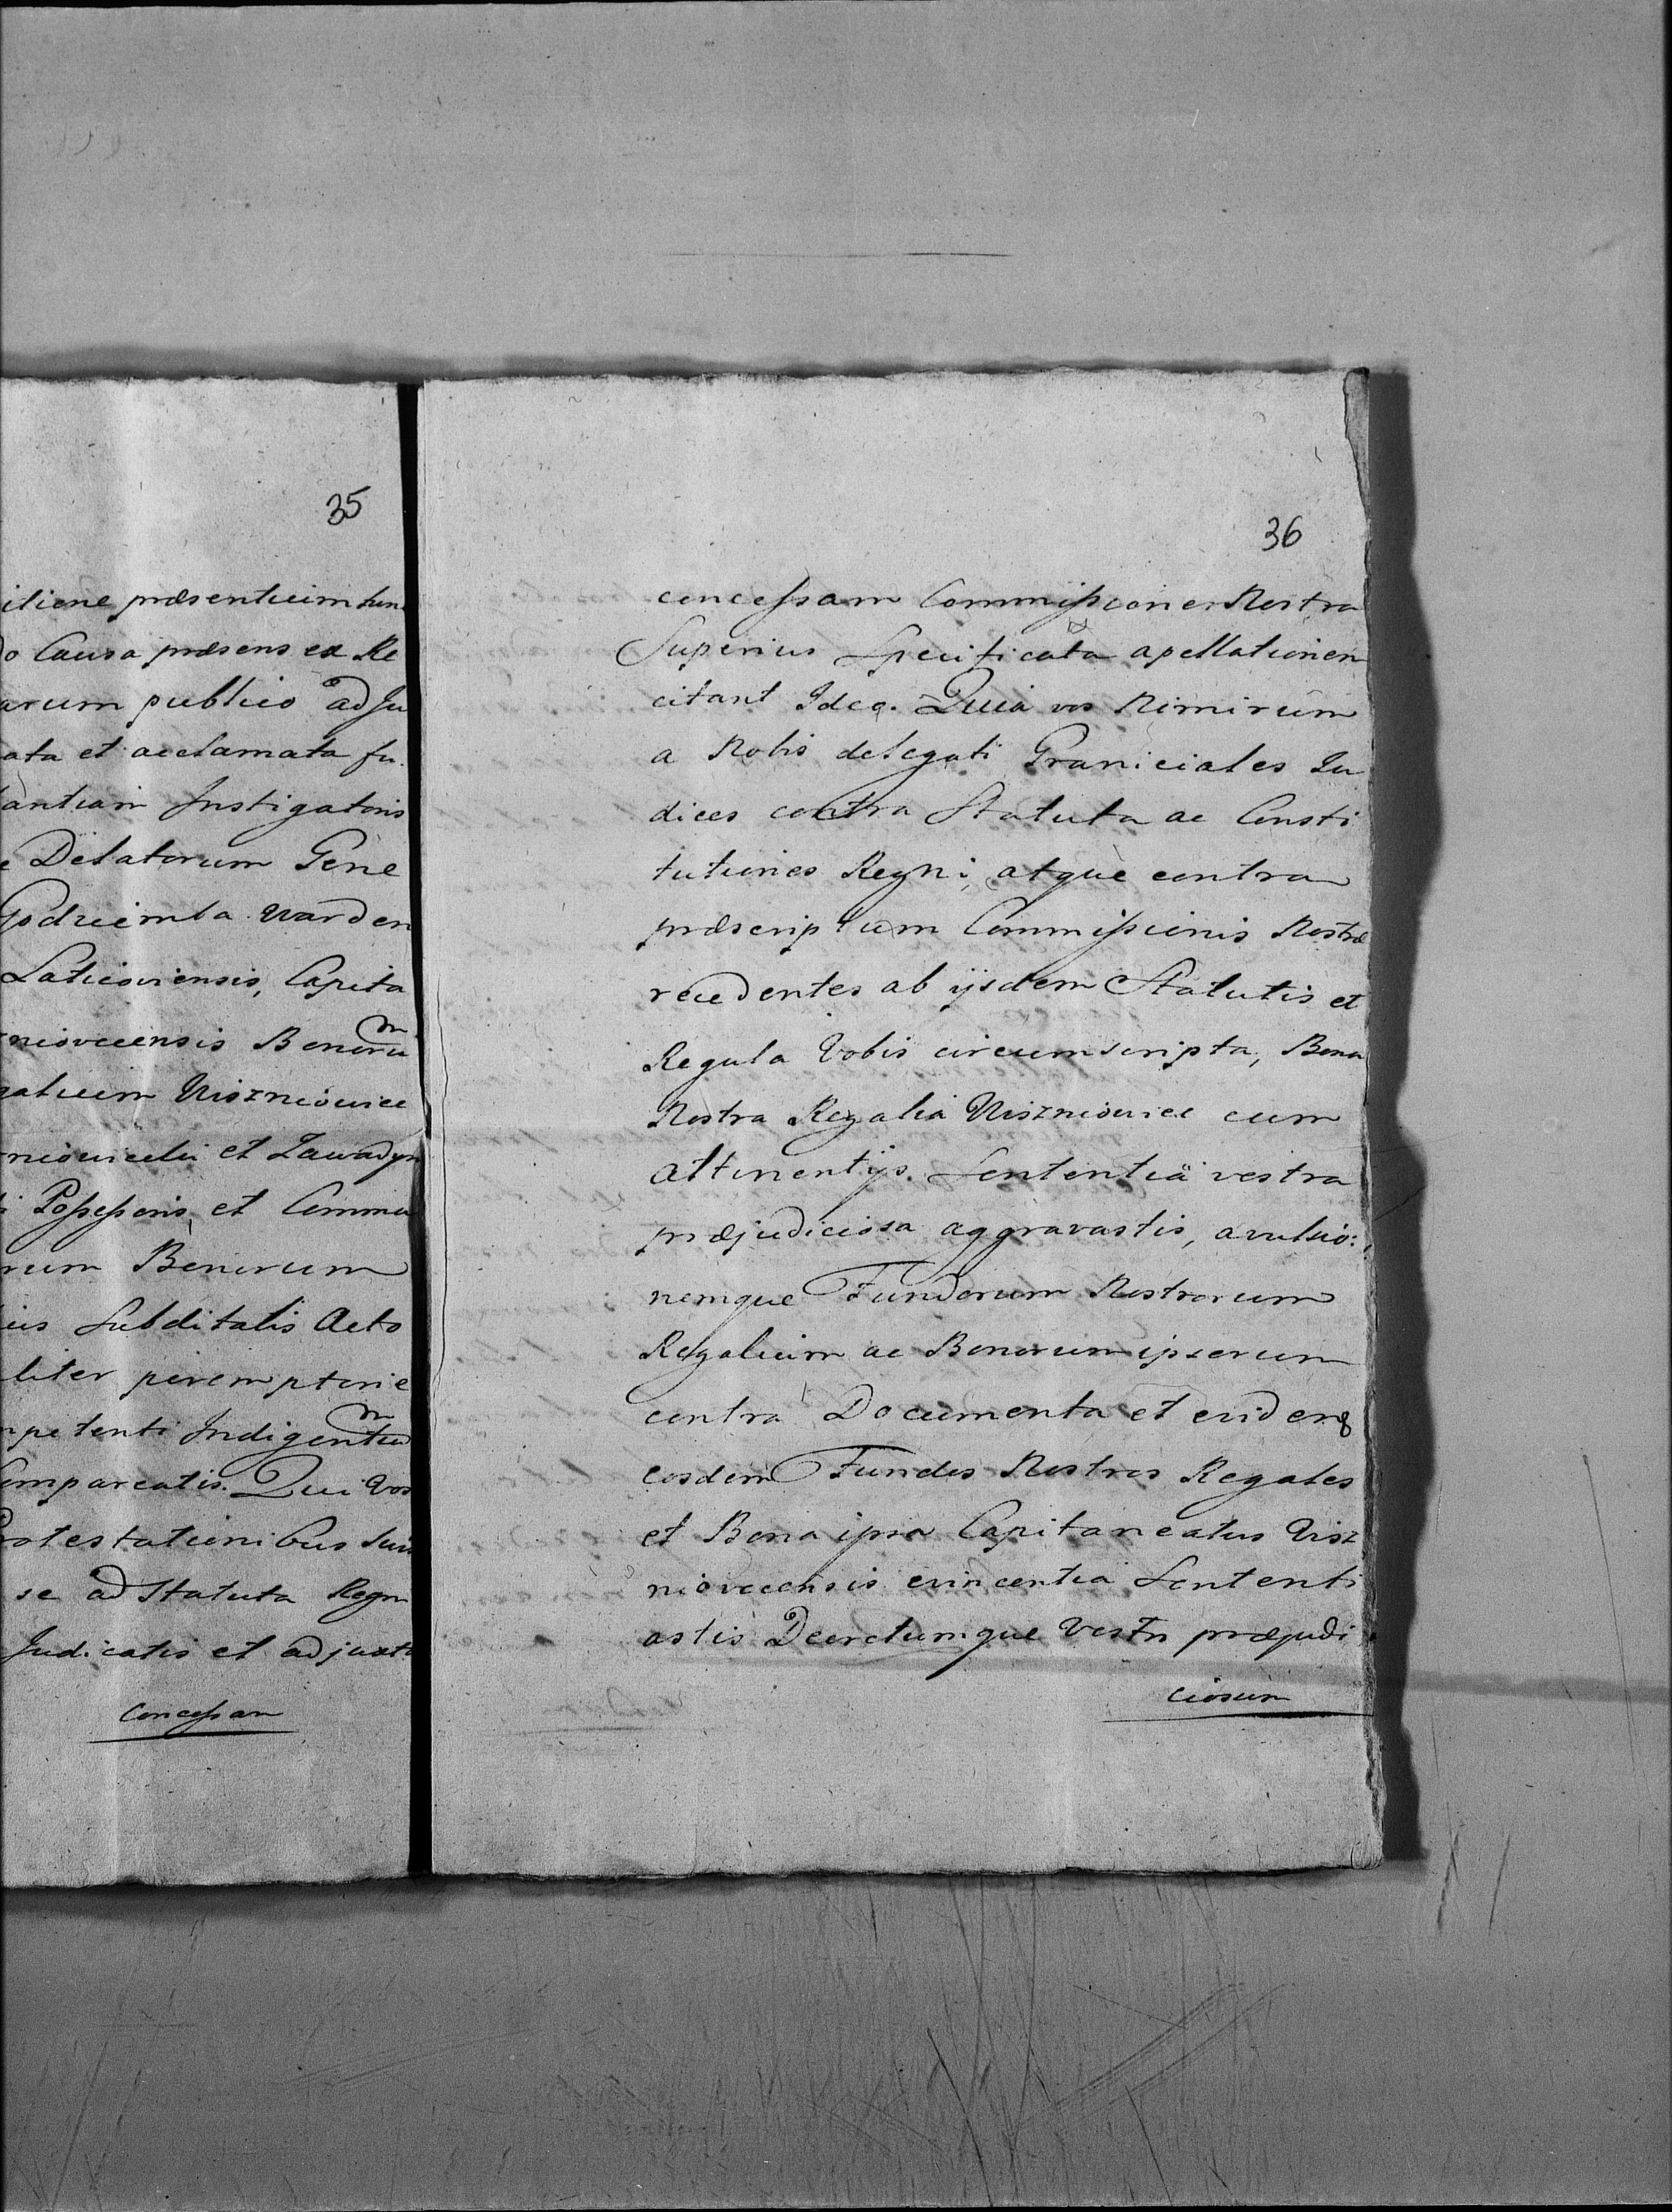 35
itione præsentium hen
o Causa præsens ex Re
arum publico ad Ju
ata et acclamata fu
antiam Instigatoris
e Delatorum Gene
Godziemba Warden
Laticoviensis, Capita
niovecensis Bonoru m
galium Uiszniowice
niowiecki et Zawadyn
i Possessoris, et Commu
rum Bonorum
ius Subditalis Acto
liter peremptorie
mpetenti Indigentu m
Compareatis. Qui Vos
rotestationibus suis
se ad Statuta Regni
Judicatis et ad juxta
Concessam
36
concessam Commissioner Nostra
Superius Specificata apellationem
citant Ideo. Quia vos Nimirùm
a Nobis delegati Graniciales Ju
dices contra Statuta ac Consti
tutiones Regni, atquè contra
præscriptum Commissionis Nostræ
recedentes ab ijsdem Statutis et
Regula Vobis circumscripta, Bona
Nostra Regalia Uiszniowice cum
attinentijs. Sententia vestra
præjudiciosa aggravastis, avulsio:
nemque Fundorum Nostrorum
Regalium ac Bonorum ipsorum
contra Documenta et eviden
eosdem Fundos Nostros Regales
et Bona ipsa Capitaneatus Visz
niovecensis evincentia Sententi
astis Decretumque Vestr præjudi
ciosum